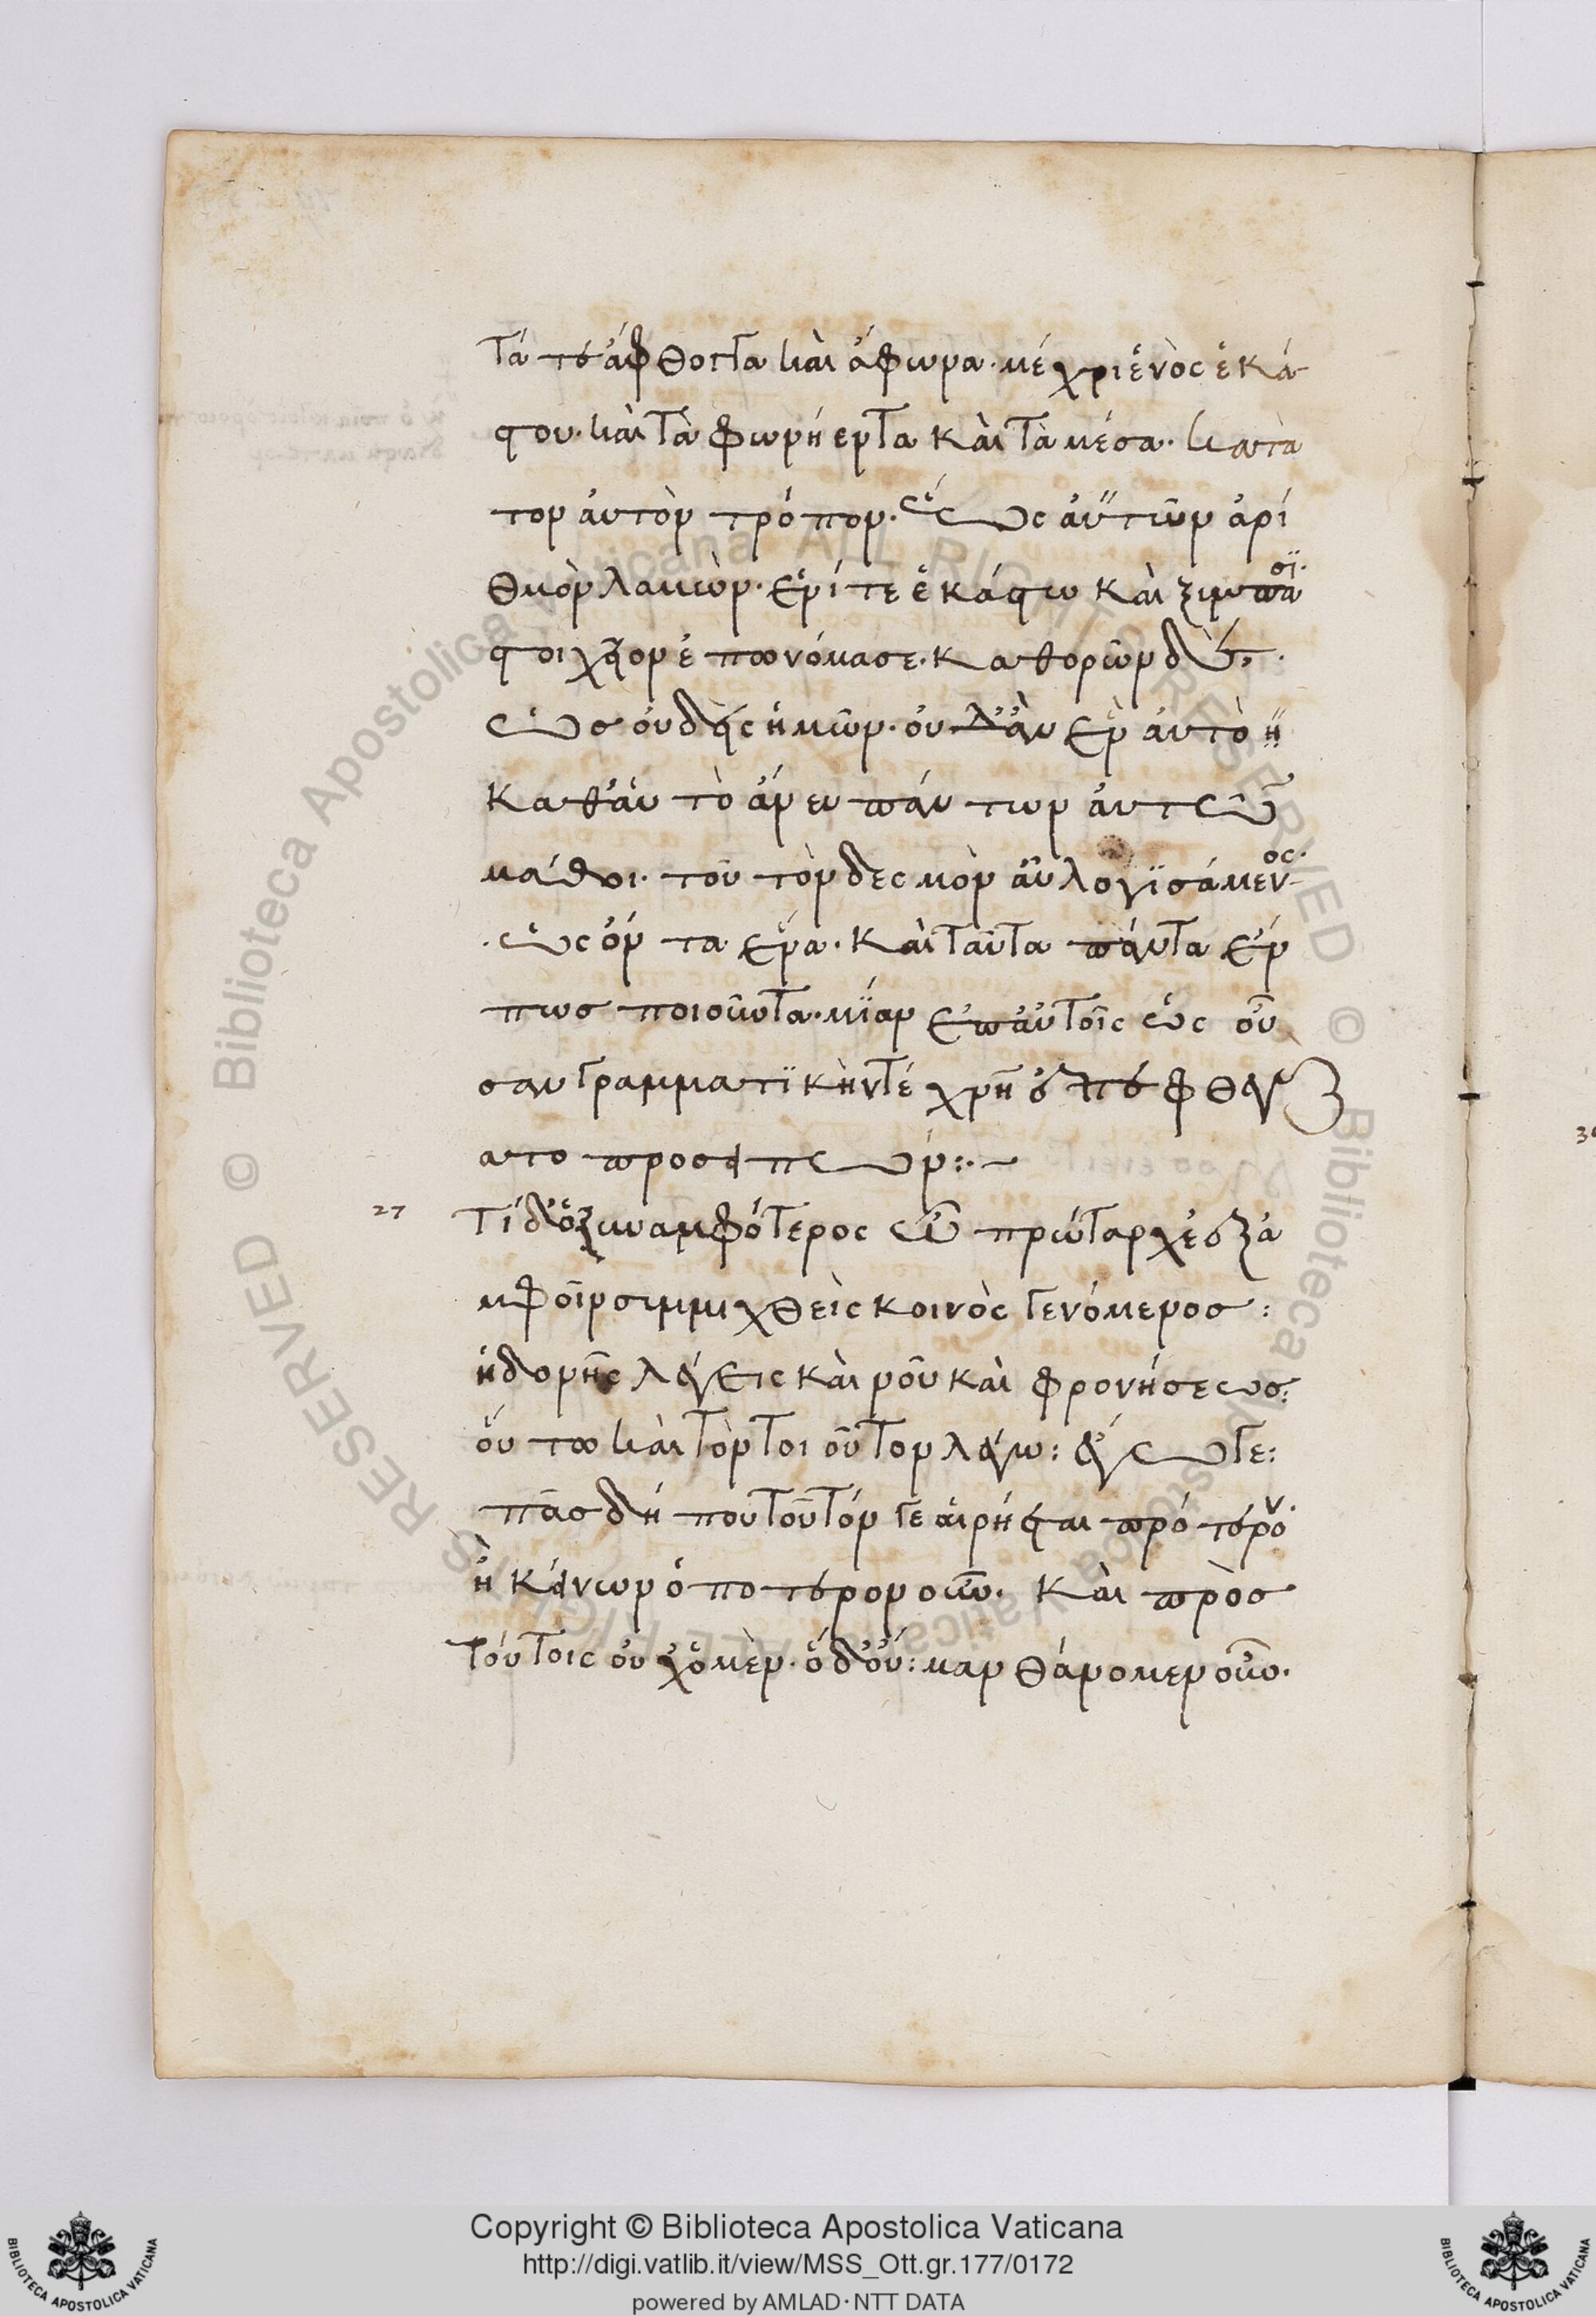 τά τε ἄφθογγα καὶ ἄφωνα· μέχρι ἑνὸς ἑκά
στου· καὶ τὰ φωνήεντα καὶ τὰ μέσα· κατὰ
τον αὐτὸν τρόπον· ἕως αὐτῶν ἀρι
θμὸν λαμὼν· ἑνί τε ἑκάστω καὶ ξύμπασι·
στοιχεῖον ἐπωνόμασε· καθορῶν δὲ·
ὡς οὐδεὶς ἡμῶν· οὐδ' ἂν ἓν αὐτὸ
καθ' αὑτὸ ἄνευ πάντων αὐτῶν
μάθοι· τοῦτον δεσμὸν αὖ λογϊσάμενος·
ὡς ὄντα ἕνα· καὶ ταῦτα πάντα ἕν
πως ποιοῦντα· μΐαν ἐπ' αὐτοῖς ὡς οὖ
σαν γραμματϊκὴν τέχνην ἐπεφθέγξ
ατο προσειπών:·~
27 Τί δ' ὁ ξυναμφότερος ὦ πρώταρχε ἐξ ἀ
μφοῖν συμμιχθεὶς κοινὸς γενόμενος:
ἡδονῆς λέγεις καὶ νοῦ καὶ φρονήσεως:
οὕτω καὶ τὸν τοιοῦτον λέγω: ἔγωγε:
πᾶς δήπου τοῦτόν γε αἱρήσεται πρότερον·
ἢ κείνων ὁποτερονοῦν· καὶ πρὸς
τούτοις οὐχ ὁ μὲν· ὁ δ' οὔ: μανθάνομεν οὖν·
Copyright © Biblioteca Apostolica Vaticana
http://digi.vatlib.it/view/MSS_Ott.gr.177/0172
powered by AMLAD·NTT DATA